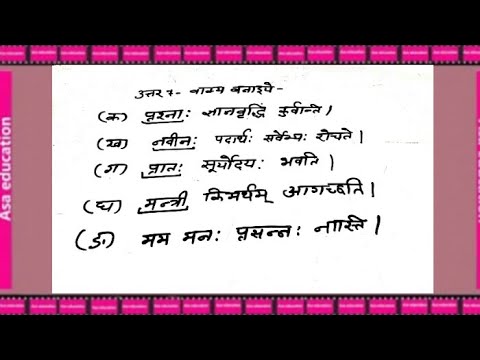 Asa education
उत्तर 7- वाक्य बनाइये -
(क) प्रश्ना: ज्ञानवृद्धिं कुर्वन्ति।
(ख) नवीन: पदार्थ: सर्वेभ्य: रोचते।
(ग) प्रात: सूर्योदय: भवति।
(घ) मन्त्री किमर्थम् आगच्छति।
(ङ) मम मन: प्रसन्न: नास्ति।
Asa education